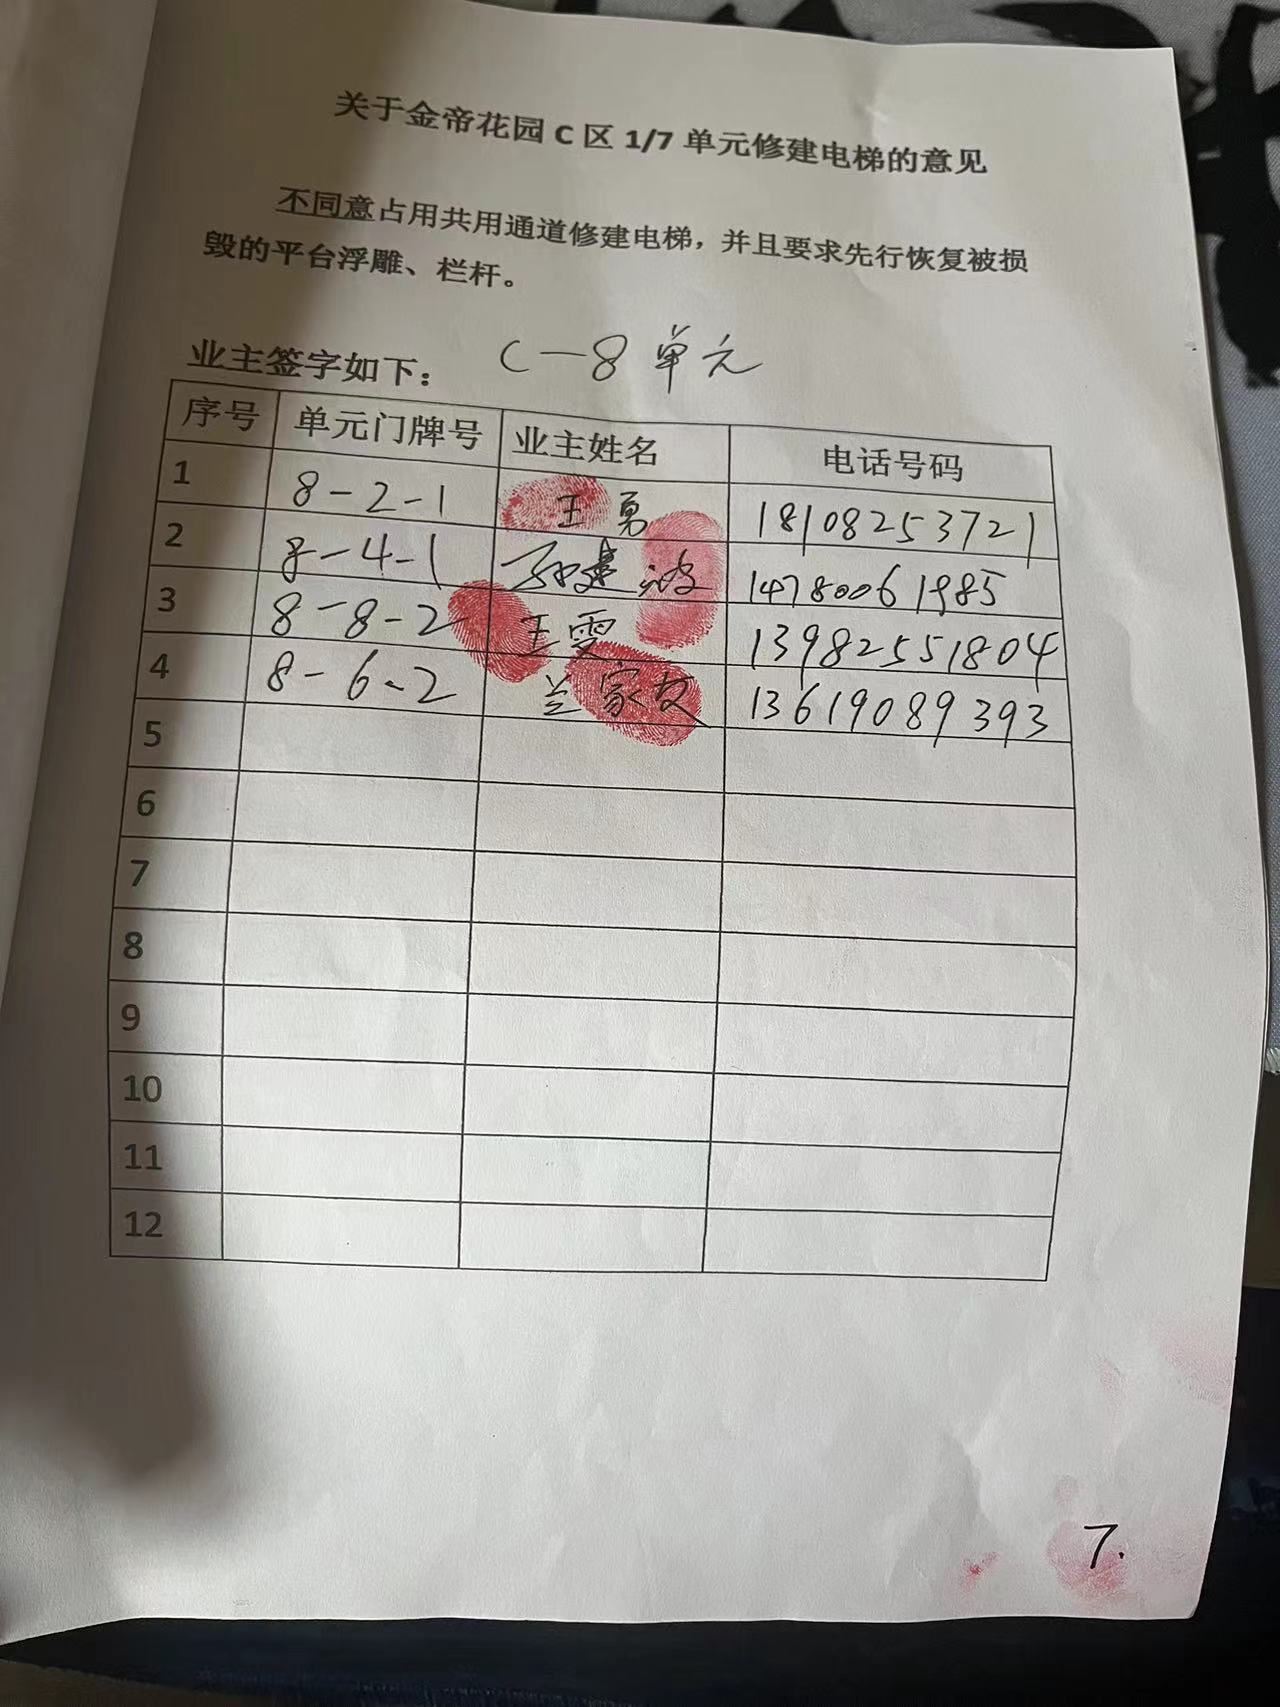 关于金帝花园 C 区 1/7 单元修建电梯的意见
不同意占用共用通道修建电梯，并且要求先行恢复被损
毁的平台浮雕、栏杆。
业主签字如下： C-8 单元
序号 单元门牌号 业主姓名 电话号码
1 8-2-1 王勇 18108253721
2 8-4-1 建波 14780061985
3 8-8-2 王雯 13982551804
4 8-6-2 兰家友 13619089393
5
6
7
8
9
10
11
12
7.